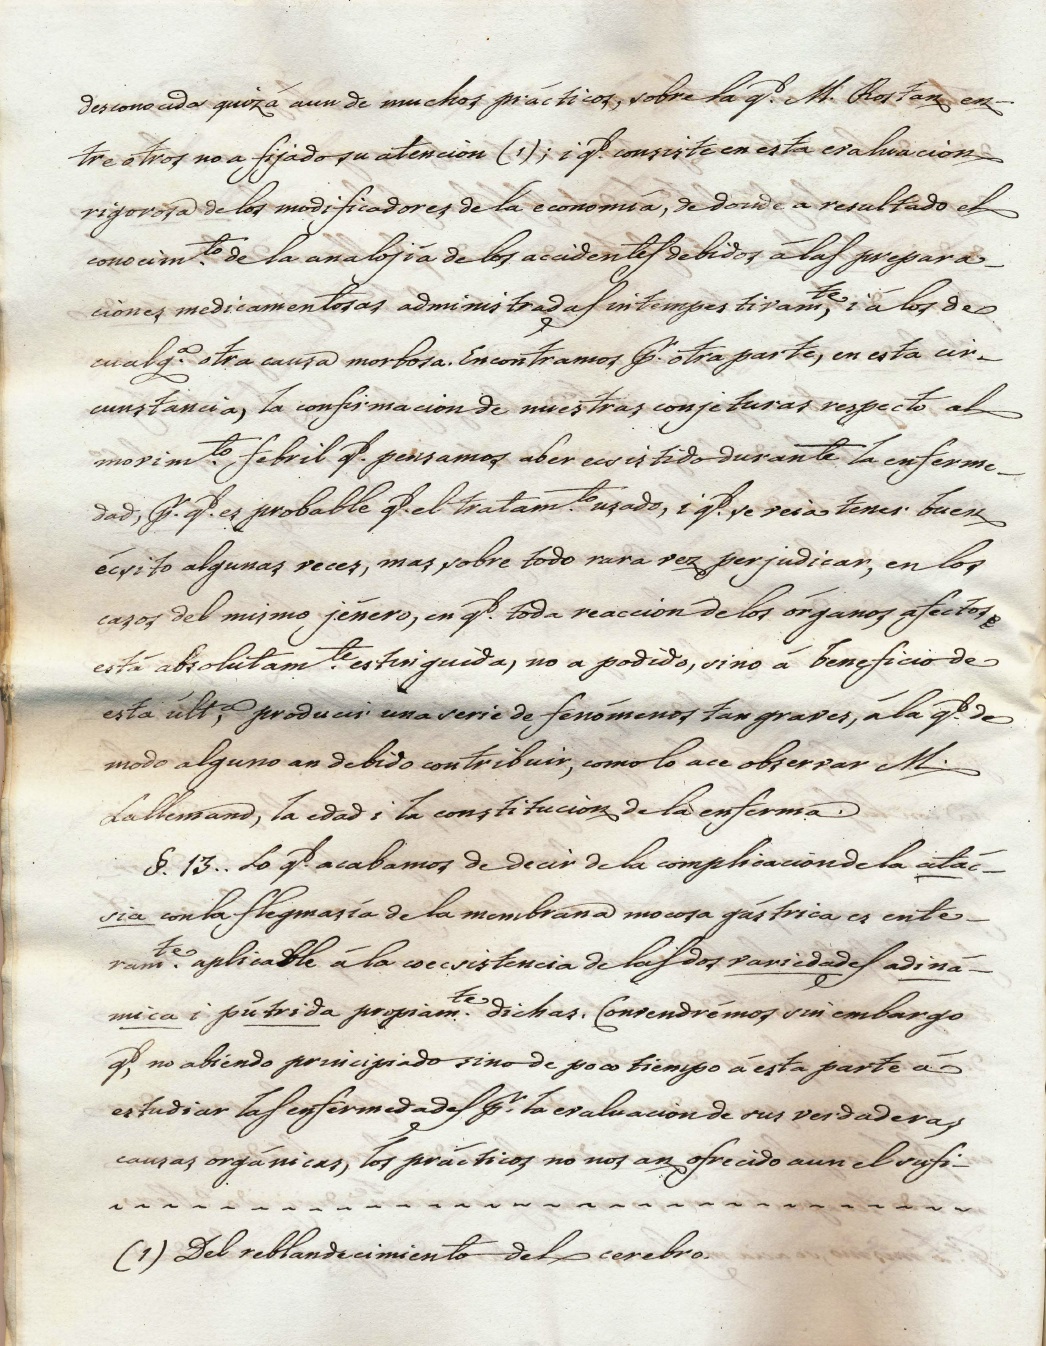 desconocida quizá aun de muchos prácticos, sobre la q.e M. Rostan en-
tre otros no a fijado su atencion (1); i q.e consiste en esta evaluacion
rigorosa de los modificadores de la economía, de donde a resultado el
conocim.to de la analojía de los accidentes debidos á las prepara-
ciones medicamentosas administradas intempestivam.te, i á los de
cualq.a otra causa morbosa. Encontramos p.r otra parte, en esta cir-
cunstancia, la confirmacion de nuestras conjeturas respecto al
movim.to febril q.e pensamos aber ecsistido durante la enferme-
dad, p.r q.e es probable q.e el tratam.to usado, i q.e se veia tener buen
écsito algunas veces, mas sobre todo rara vez perjudicar, en los
casos del mismo jénero, en q.e toda reaccion de los órganos afectos,
está absolutam.te estinguida, no a podido, sino á beneficio de
esta últ.a producir una serie de fenómenos tan graves, á la q.e de
modo alguno an debido contribuir, como lo ace observar M.
Lallemand, la edad i la constitucion de la enferma.
§. 13.. Lo q.e acabamos de decir de la complicacion de la atác-
sia con la flegmasía de la membrana mocosa gástrica es ente-
ram.te aplicable á la coecsistencia de las dos variedades adiná-
mica i pútrida propiam.te dichas. Convendrémos sin embargo
q.e, no abiendo principiado sino de poco tiempo á esta parte á
estudiar las enfermedades p.r la evaluacion de sus verdaderas
causas orgánicas, los prácticos no nos an ofrecido aun el sufi-
(1) Del reblandecimiento del cerebro.